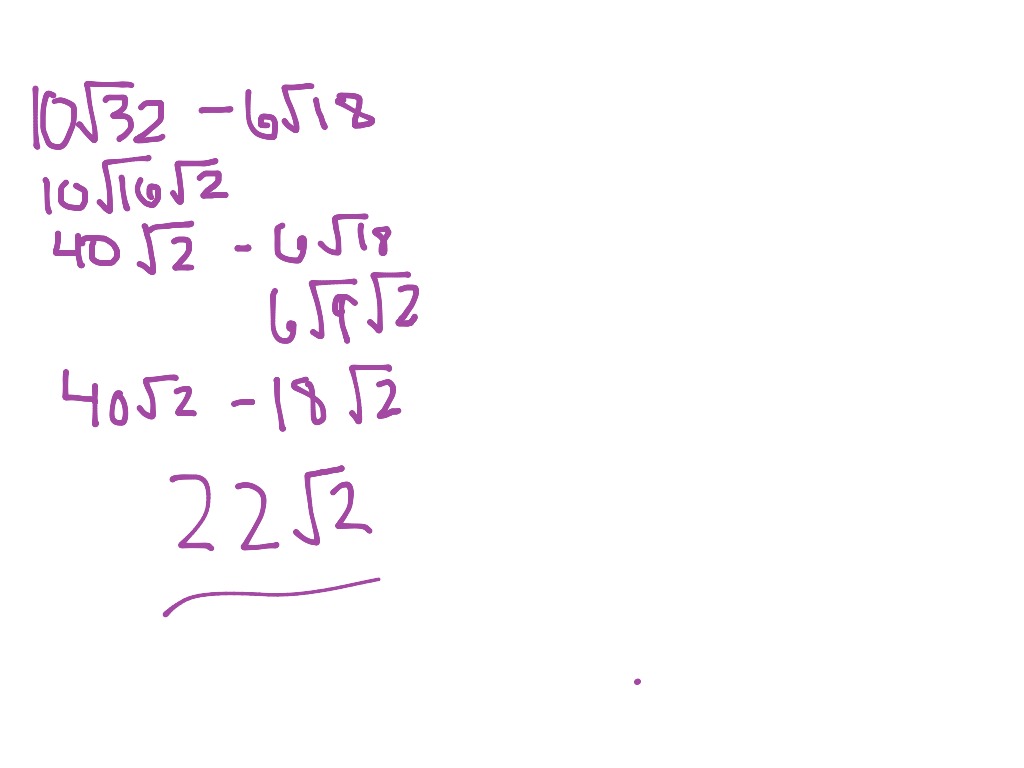 10√32 - 6√18
10√16√2
40√2 - 6√18
6√9√2
40√2 - 18√2
22√2